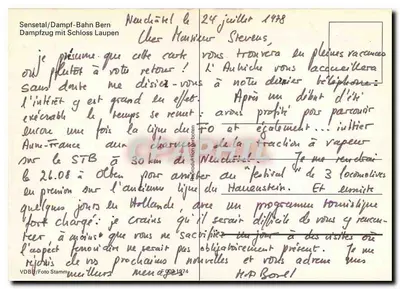 Sensetal/Dampf-Bahn Bern
Dampfzug mit Schloss Laupen
Neuchâtel le 24 juillet 1978
Cher Monsieur Stevens,
je présume que cette carte vous trouvera en pleines vacances
ou plutôt à votre retour ! L'Autriche vous accueillera
sans doute me disiez-vous à notre dernier téléphone:
l'intérêt y est grand en effet. Après un début d'été
exécrable le temps se remet: avons profité pour parcourir
encore une fois la ligne du FO et également... initier
Anne-France aux charmes de la traction à vapeur
sur le STB à 30km de Neuchâtel. Je me rendrai
le 26.08 à Olten pour assister au "festival" de 3 locomotives
en pression sur l'ancienne ligne du Hauenstein. Et ensuite
quelques jours en Hollande avec un programme touristique
fort chargé: je crains qu'il serait difficile de vous y rencon-
trer, à moins que vous ne sacrifiez un jour à des visites où
l'aspect ferroviaire ne serait pas obligatoirement présent. Je me
réjouis de vos prochaines nouvelles et vous adresse mes
meilleurs messages
H.P. Borel
VDBB/Foto Stamm
1974